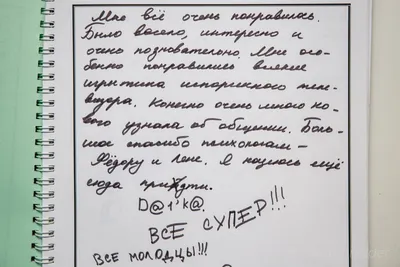 Мне всё очень понравилось.
Было весело, интересно и
очень познавательно. Мне осо-
бенно понравились
Конечно очень много но-
вого узнала об общении. Боль-
шое спасибо психологам –
Фёдору и Лене. Я надеюсь ещё
сюда прийдти.
D@1'k@.
ВСЕ СУПЕР!!!
ВСЕ МОЛОДЦЫ!!!